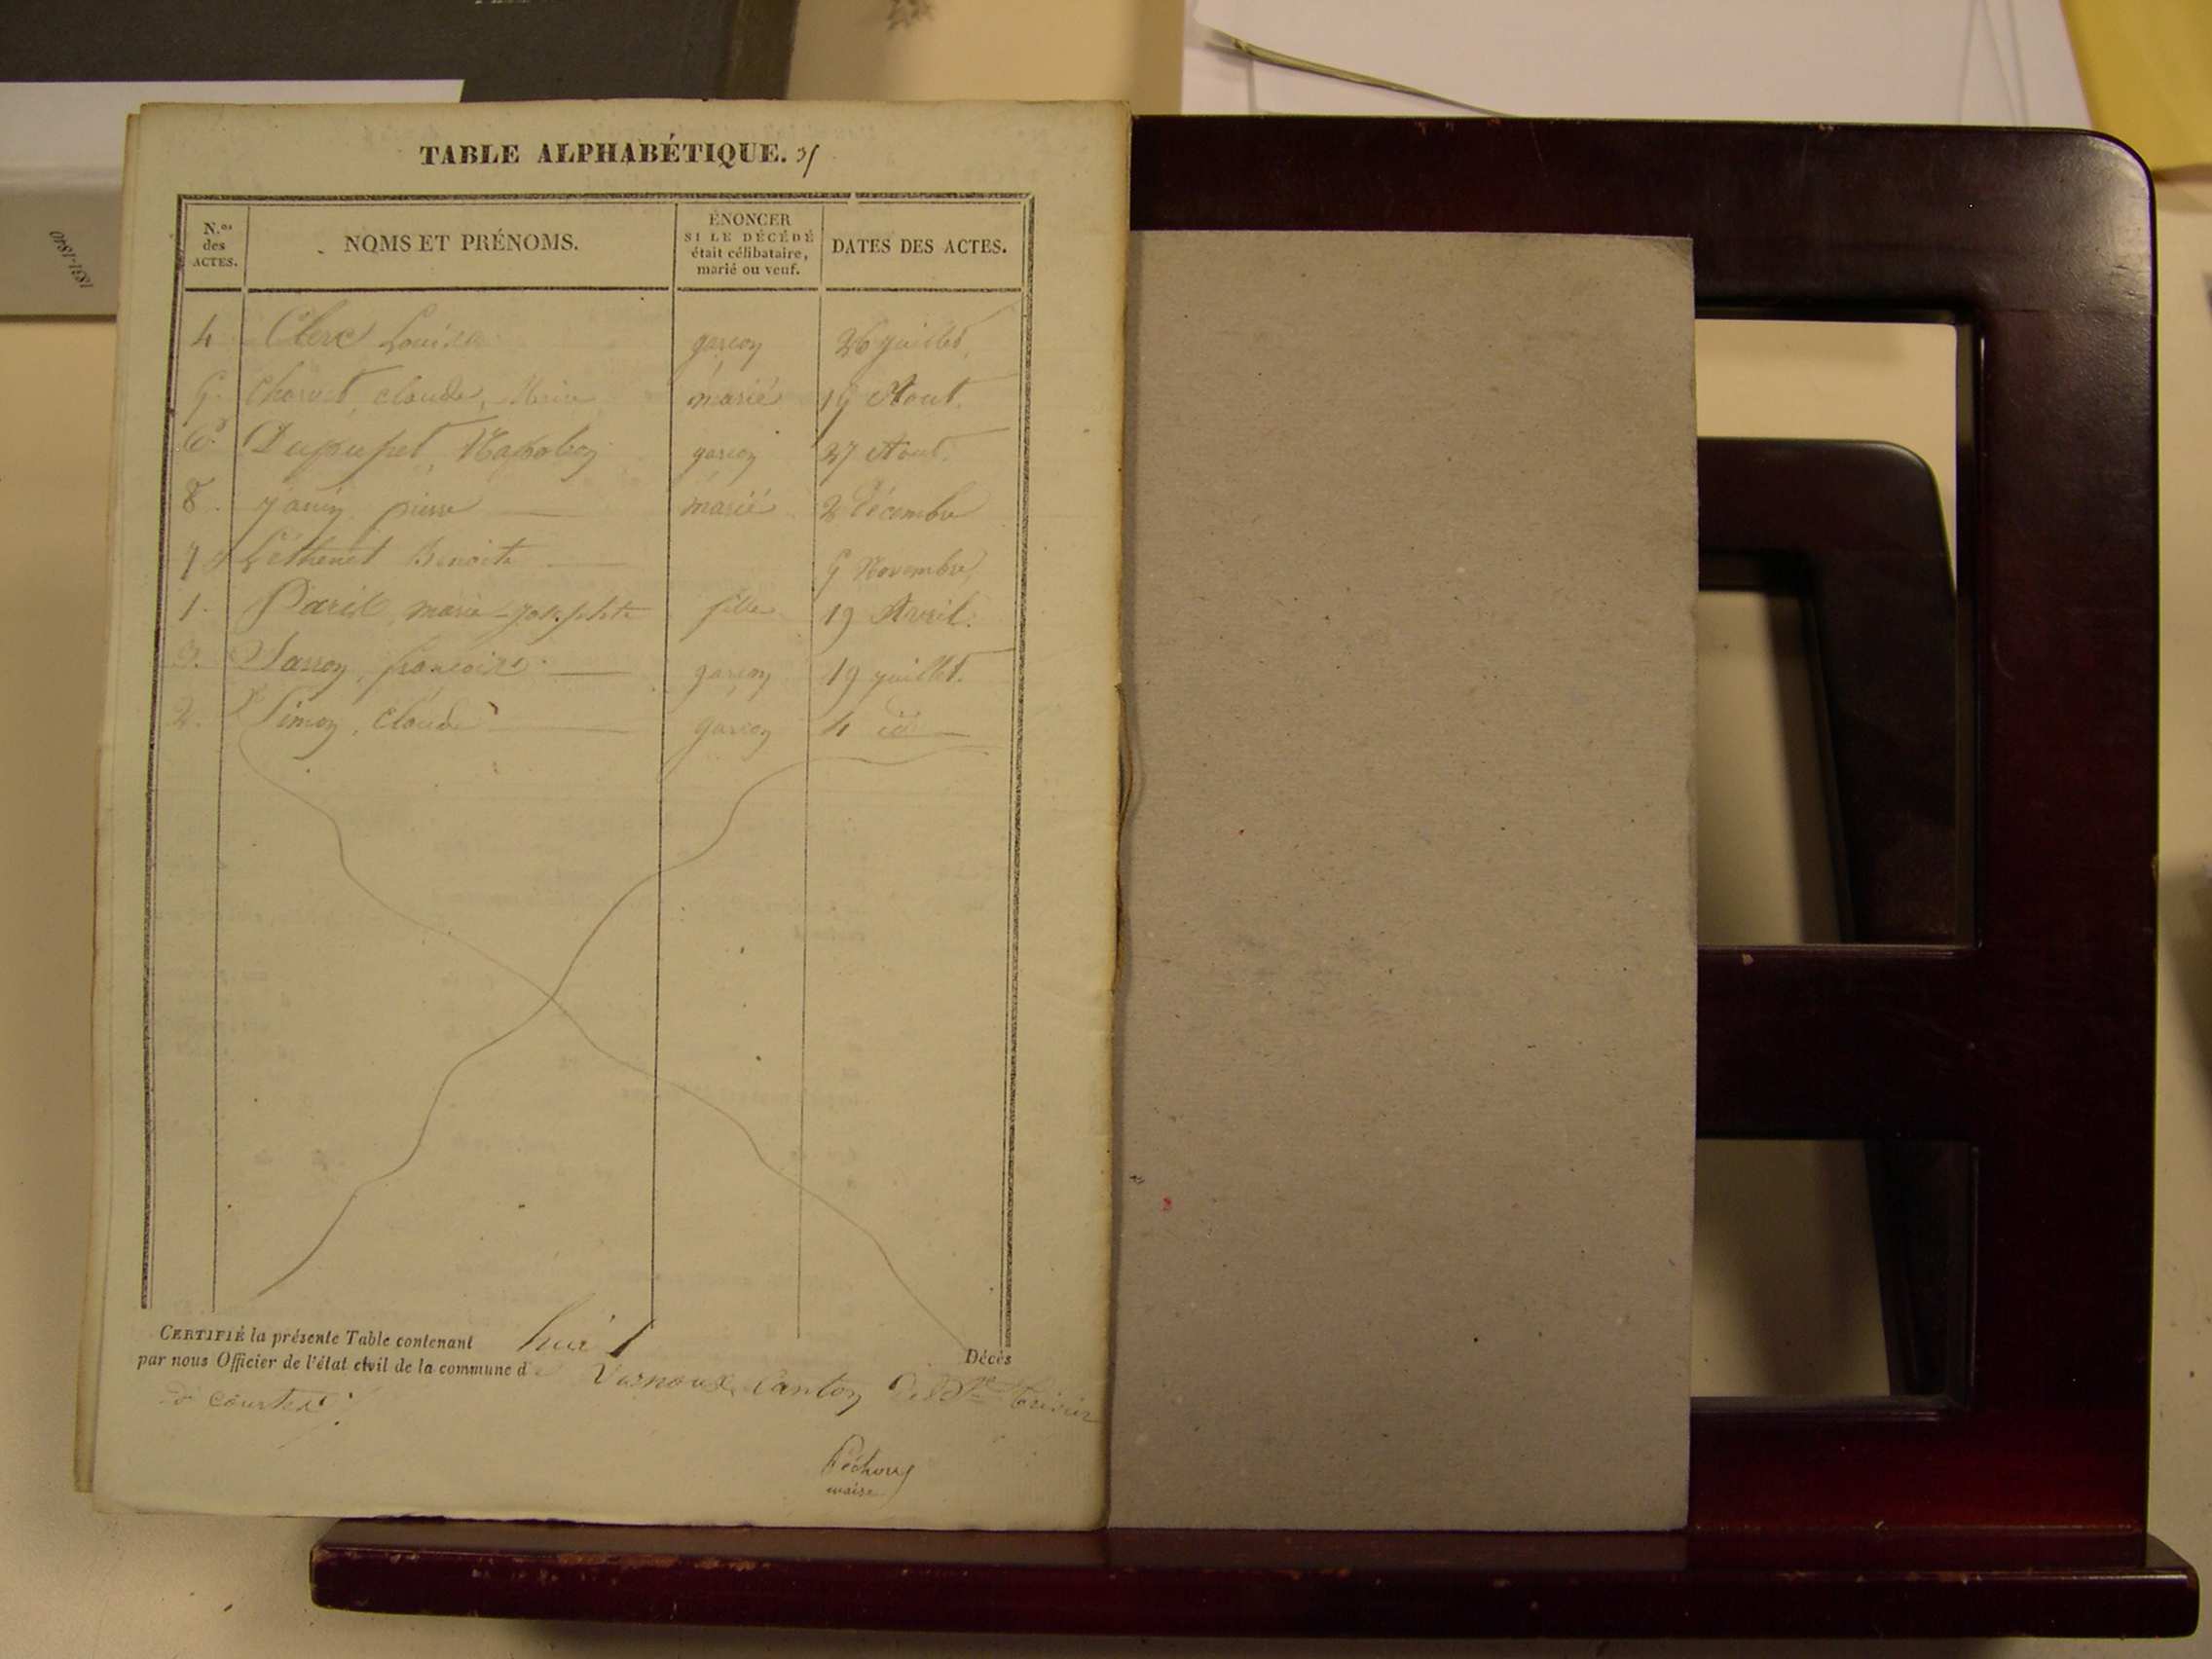 1831-1840
TABLE ALPHABÉTIQUE.
N.os des ACTES.
NOMS ET PRÉNOMS.
ÉNONCER
SI LE DÉCÉDÉ
était célibataire,
marié ou veuf.
DATES DES ACTES.
4 Clerc Louise garcon 26 juillet
5 Charvet, claude, Marie marié 19 Aout.
6 Dupupet, Napoleon garcon 27 Aout.
8 pierre marié 2 décembre
7 Benoite Novembre
1. marie josephte fille 19 Avril.
3. francoise garcon 19 juillet.
2. Simon, Claude garcon 4 id
CERTIFIÉ la présente Table contenant huit Décès
par nous Officier de l'état civil de la commune de Vernoux Canton de St. trivier
de Courtes
maire